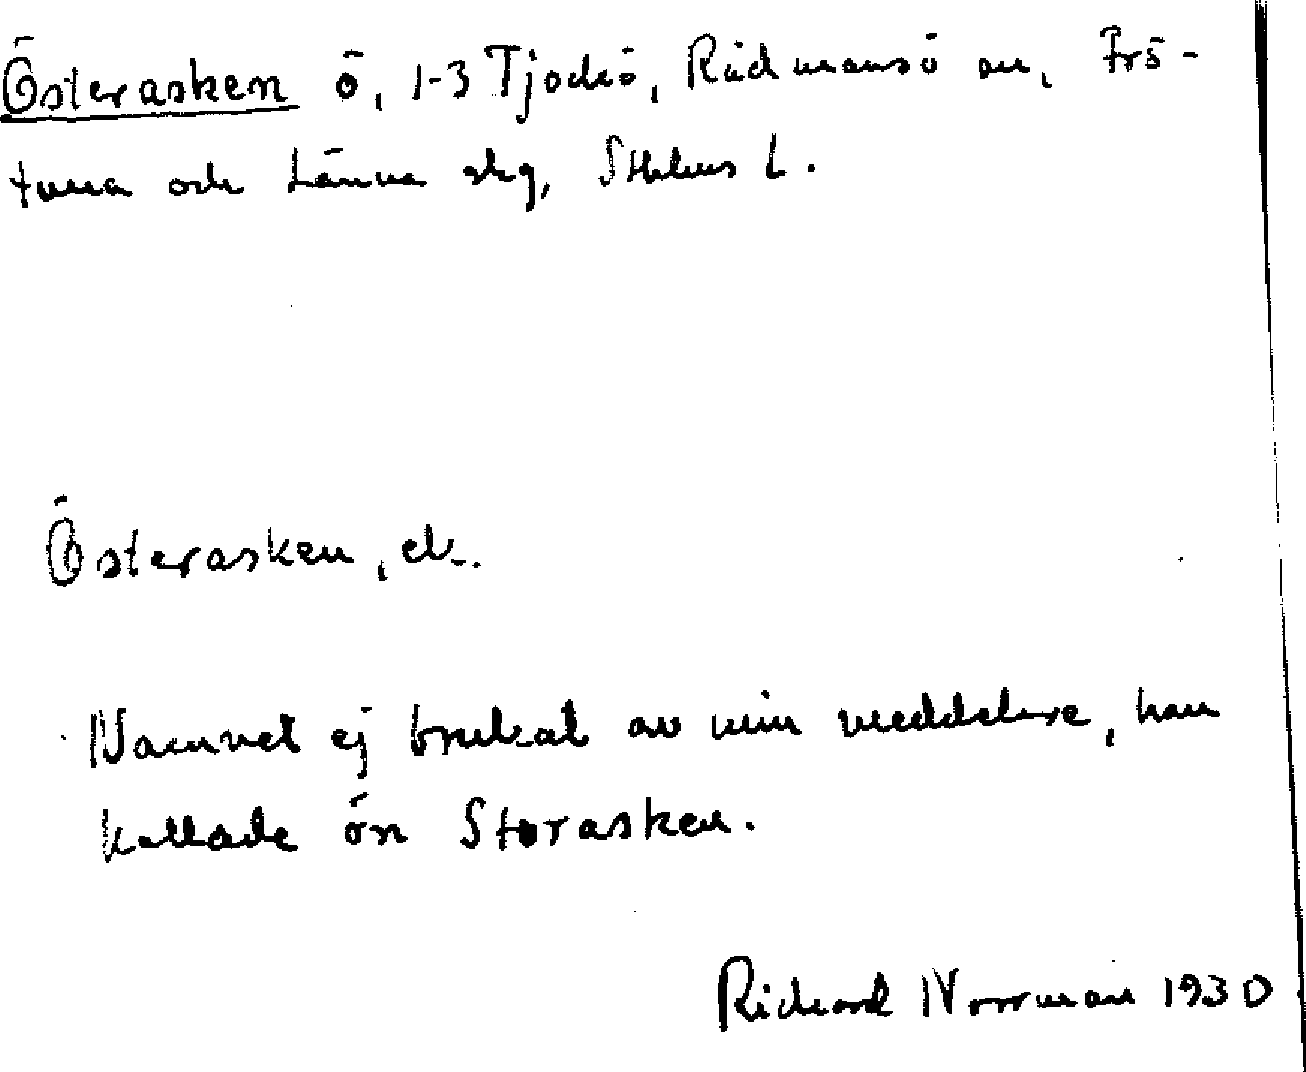 Österasken ö, 1-3 Tjockö, Rådmansö sn, Frö-
tuna och Länna skg, Sthlms l.
Österasken, ek.
Namnet ej brukat av min meddelare, han
kallade ön Storasken.
Richard Norrman 1930